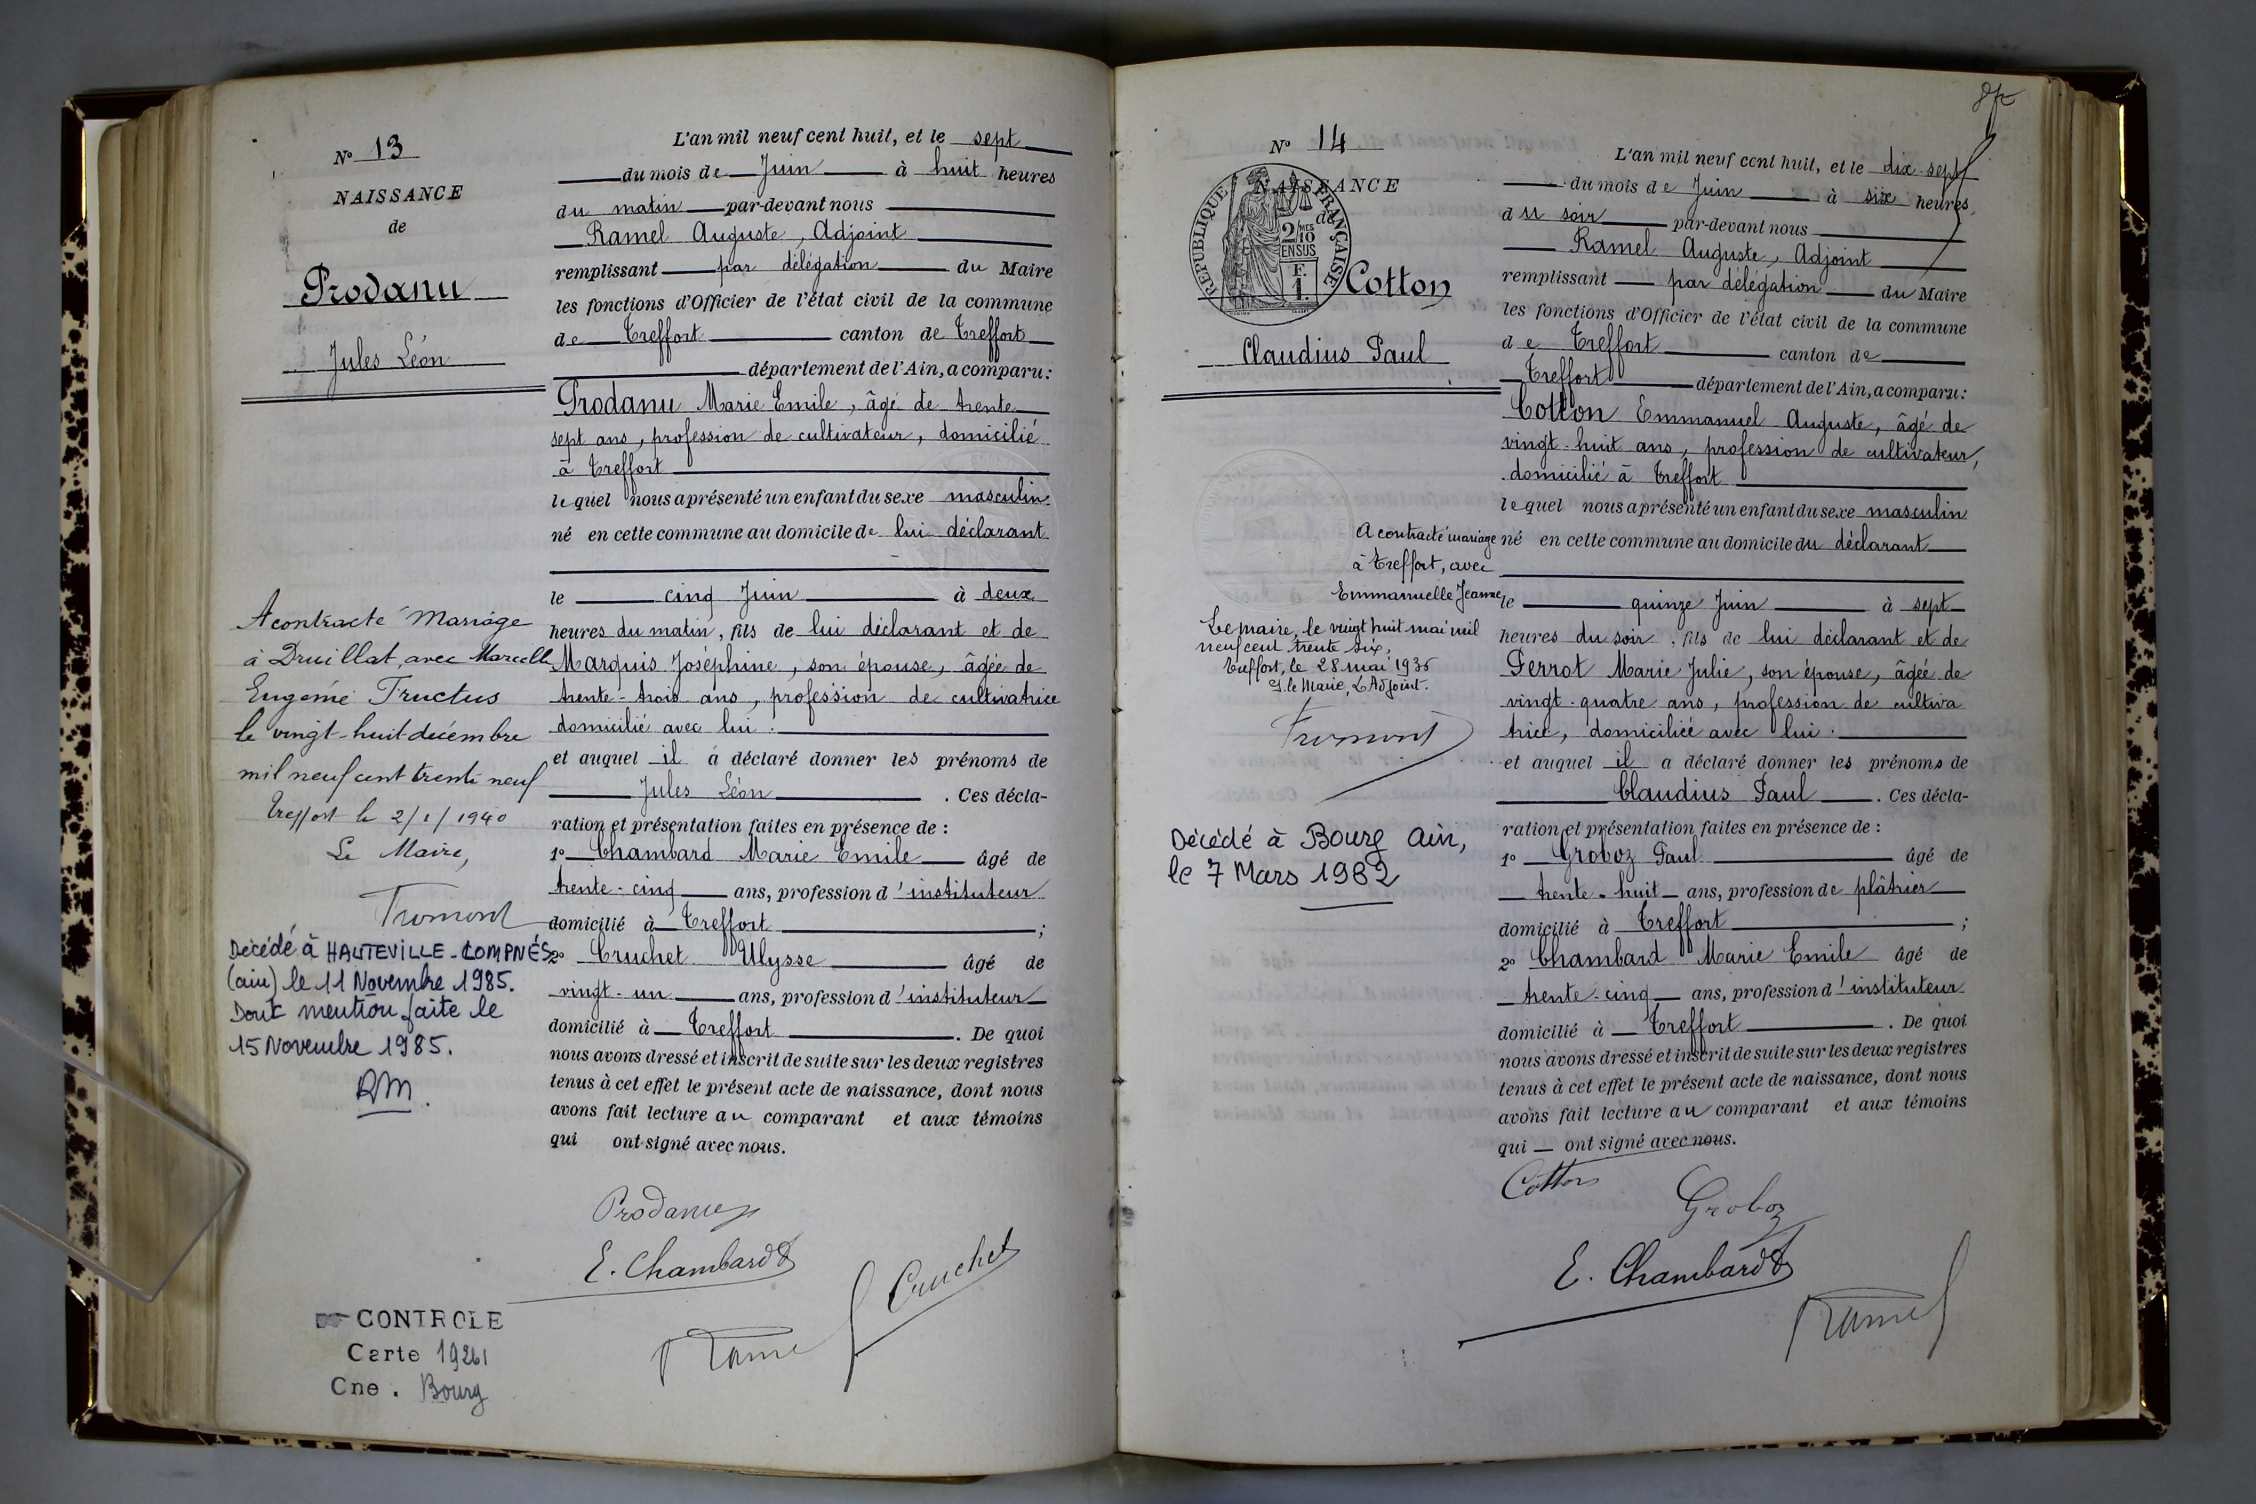 N° 13
NAISSANCE
de
Prodanu
Jules Léon
A contracté Mariage
à Druillat, avec Marcelle
Eugénie Fructus
le vingt-huit décembre
mil neuf cent trente neuf
Treffort le 2/1/1940
Le Maire,
Fromont
Décédé à HAUTEVILLE-LOMPNÉS
(ain) le 11 Novembre 1985.
Dont mention faite le
15 Novembre 1985.
RM.
CONTROLE
Carte 19261
Cne. Bourg
L'an mil neuf cent huit, et le sept
du mois de Juin à huit heures
du matin par-devant nous
Ramel Auguste, Adjoint
remplissant par délégation du Maire
les fonctions d'Officier de l'état civil de la commune
de Treffort canton de Treffort
département de l'Ain, a comparu:
Prodanu Marie Emile, âgé de trente
sept ans, profession de cultivateur, domicilié
à Treffort
lequel nous a présenté un enfant du sexe masculin
né en cette commune au domicile de lui déclarant
le cinq Juin à deux
heures du matin, fils de lui déclarant et de
Marquis Joséphine, son épouse, âgée de
trente-trois ans, profession de cultivatrice
domicilié avec lui.
et auquel il a déclaré donner les prénoms de
Jules Léon. Ces décla-
ration et présentation faites en présence de:
1° Chambard Marie Emile âgé de
trente-cinq ans, profession d'instituteur
domicilié à Treffort;
2° Cruchet Ulysse âgé de
vingt-un ans, profession d'instituteur
domicilié à Treffort. De quoi
nous avons dressé et inscrit de suite sur les deux registres
tenus à cet effet le présent acte de naissance, dont nous
avons fait lecture au comparant et aux témoins
qui ont signé avec nous.
Prodanu
E. Chambard
Cruchet
Ramel
N° 14
NAISSANCE
de
RÉPUBLIQUE FRANÇAISE
2/10 MES
EN SUS
F.
1.
Cotton
Claudius Paul
A contracté mariage
à Treffort, avec
Emmanuelle Jeanne
Lemaire, le vingt huit mai mil
neuf cent trente six,
Treffort, le 28 mai 1936
P. le Maire, L'Adjoint.
Fromont
Décédé à Bourg Ain,
le 7 Mars 1982
L'an mil neuf cent huit, et le dix-sept
du mois de Juin à six heures
du soir par-devant nous
Ramel Auguste, Adjoint
remplissant par délégation du Maire
les fonctions d'Officier de l'état civil de la commune
de Treffort canton de
Treffort département de l'Ain, a comparu:
Cotton Emmanuel Auguste, âgé de
vingt-huit ans, profession de cultivateur,
domicilié à Treffort
lequel nous a présenté un enfant du sexe masculin
né en cette commune au domicile du déclarant
le quinze Juin à sept
heures du soir, fils de lui déclarant et de
Perrot Marie Julie, son épouse, âgée de
vingt-quatre ans, profession de cultiva
trice, domiciliée avec lui.
et auquel il a déclaré donner les prénoms de
Claudius Paul. Ces décla-
ration et présentation faites en présence de:
1° Groboz Paul âgé de
trente-huit ans, profession de plâtrier
domicilié à Treffort;
2° Chambard Marie Emile âgé de
trente-cinq ans, profession d'instituteur
domicilié à Treffort. De quoi
nous avons dressé et inscrit de suite sur les deux registres
tenus à cet effet le présent acte de naissance, dont nous
avons fait lecture au comparant et aux témoins
qui ont signé avec nous.
Cotton
Groboz
E. Chambard
Ramel